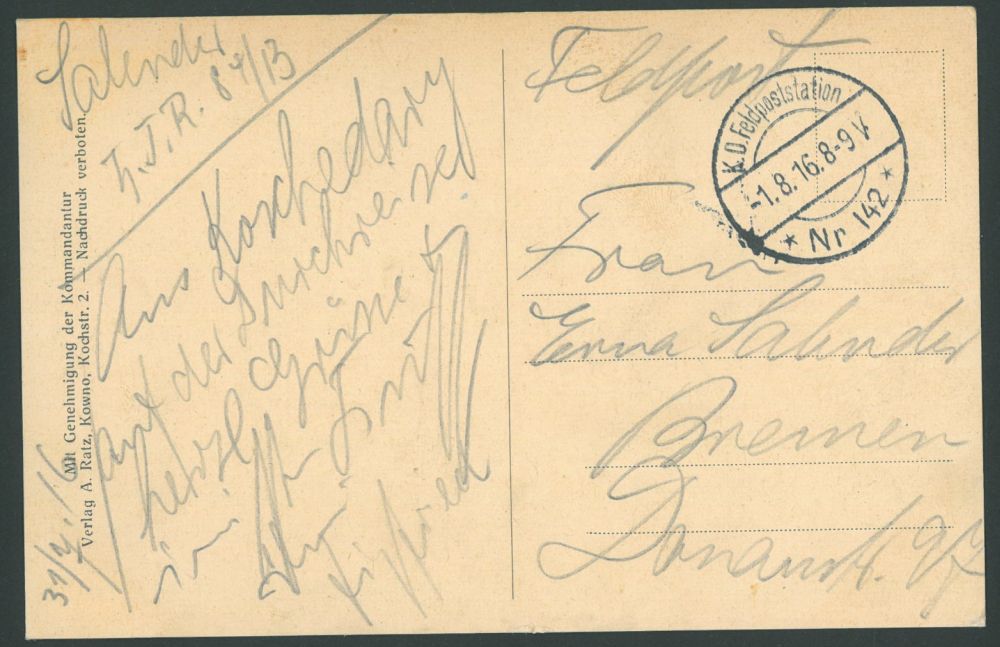 Salender
J. I. R. 84/13
Aus Koschedary
auf der Durchreise
herzl. Grüsse
Feldpost
K. D. Feldpoststation
-1.8.16.8-9V.
* Nr 142 *
Frau
Erna Salender
Bremen
Donaustr. 97
31/7.16
Mit Genehmigung der Kommandantur
Verlag A. Ratz, Kowno, Kochstr. 2. — Nachdruck verboten.